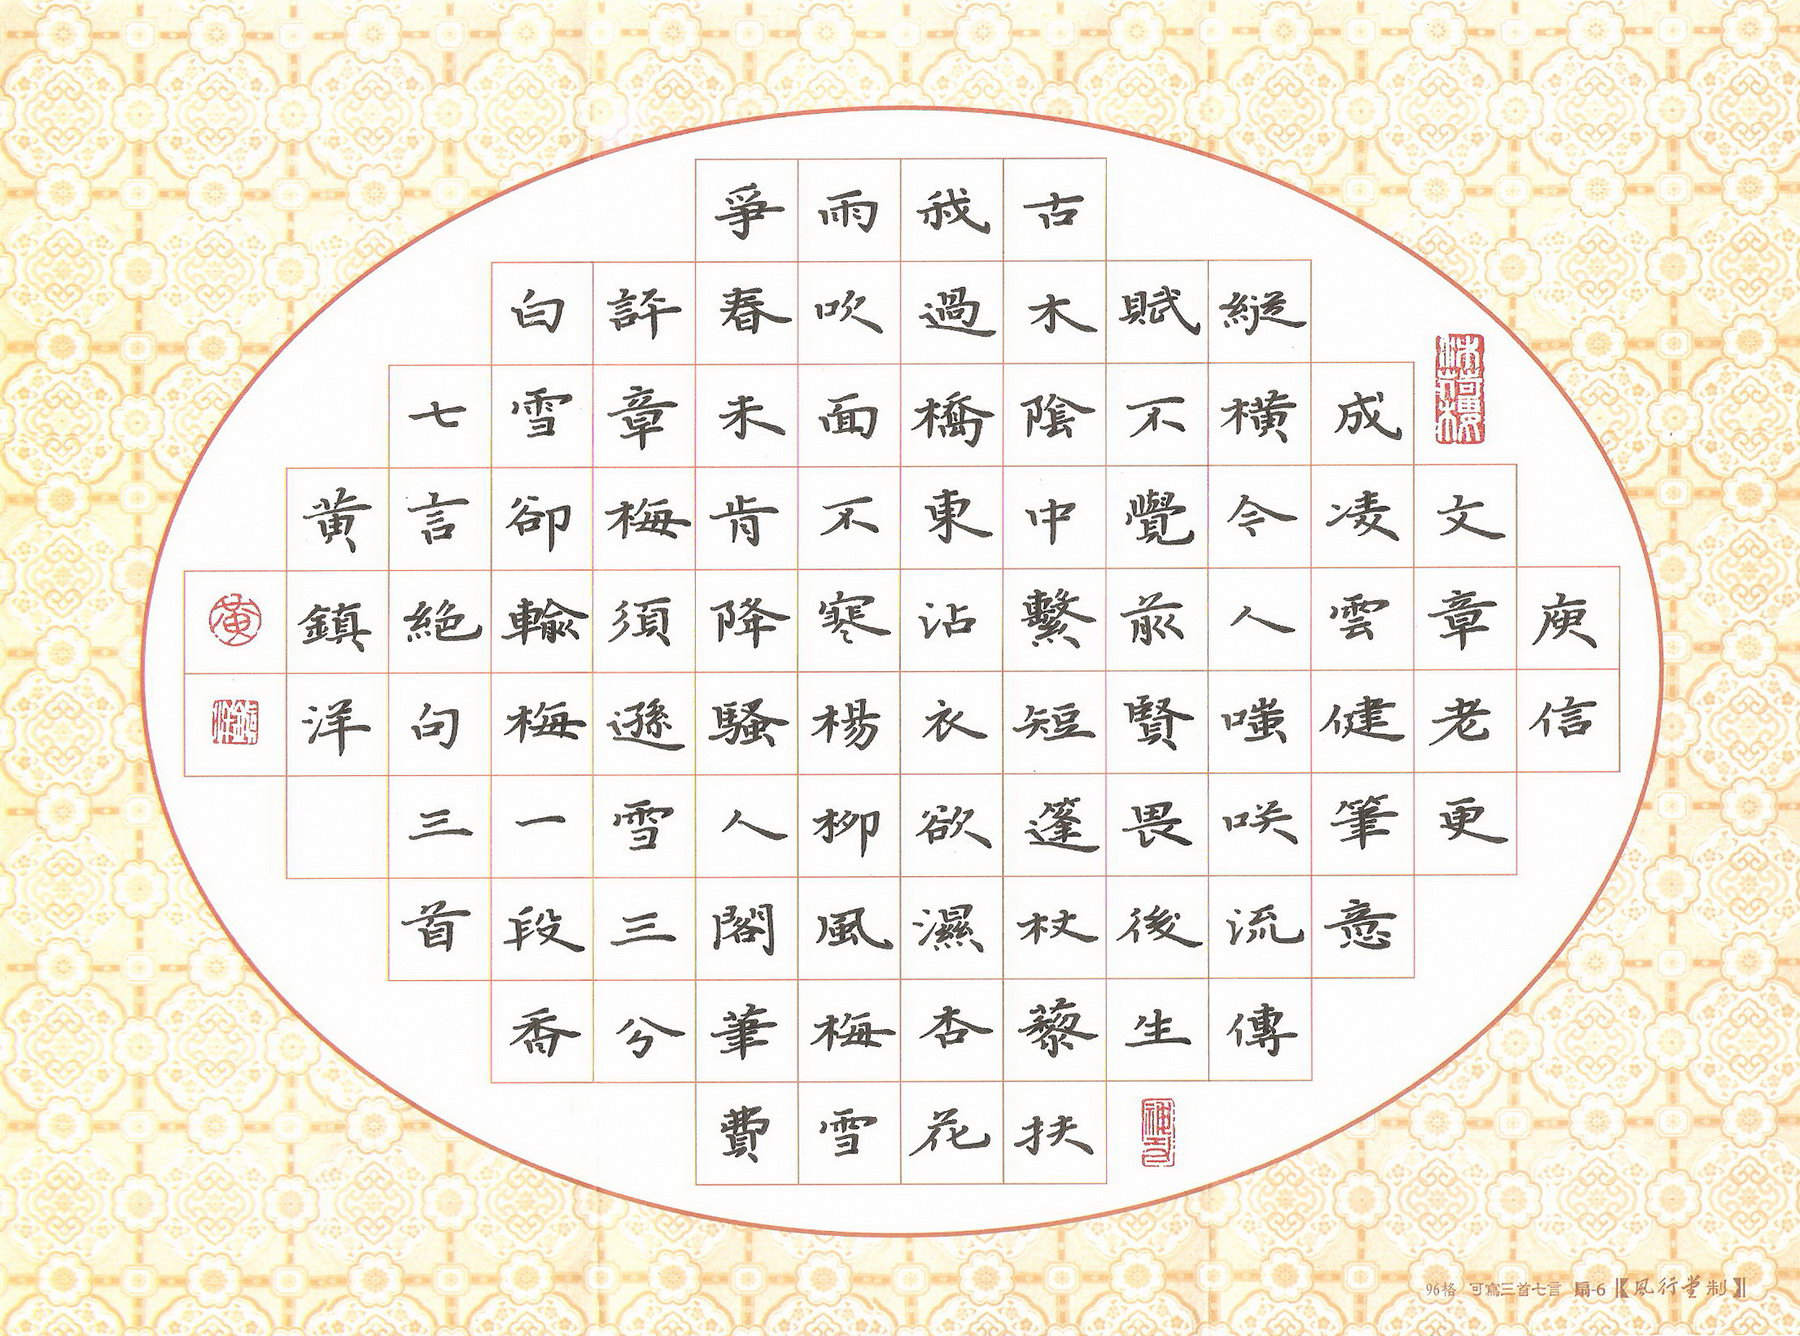 庾信
文章老更
成凌雲健筆意
縱橫令人嗤咲流傳
賦不覺前賢畏後生
古木陰中繫短篷杖藜扶
我過橋東沾衣欲濕杏花
雨吹面不寒楊柳風梅雪
爭春未肯降騷人閣筆費
評章梅須遜雪三分
白雪卻輸梅一段香
七言絕句三首
黃鎮洋
沐荷樓
黃
鎮洋
96格 可寫三首七言 扇-6【風行堂制】